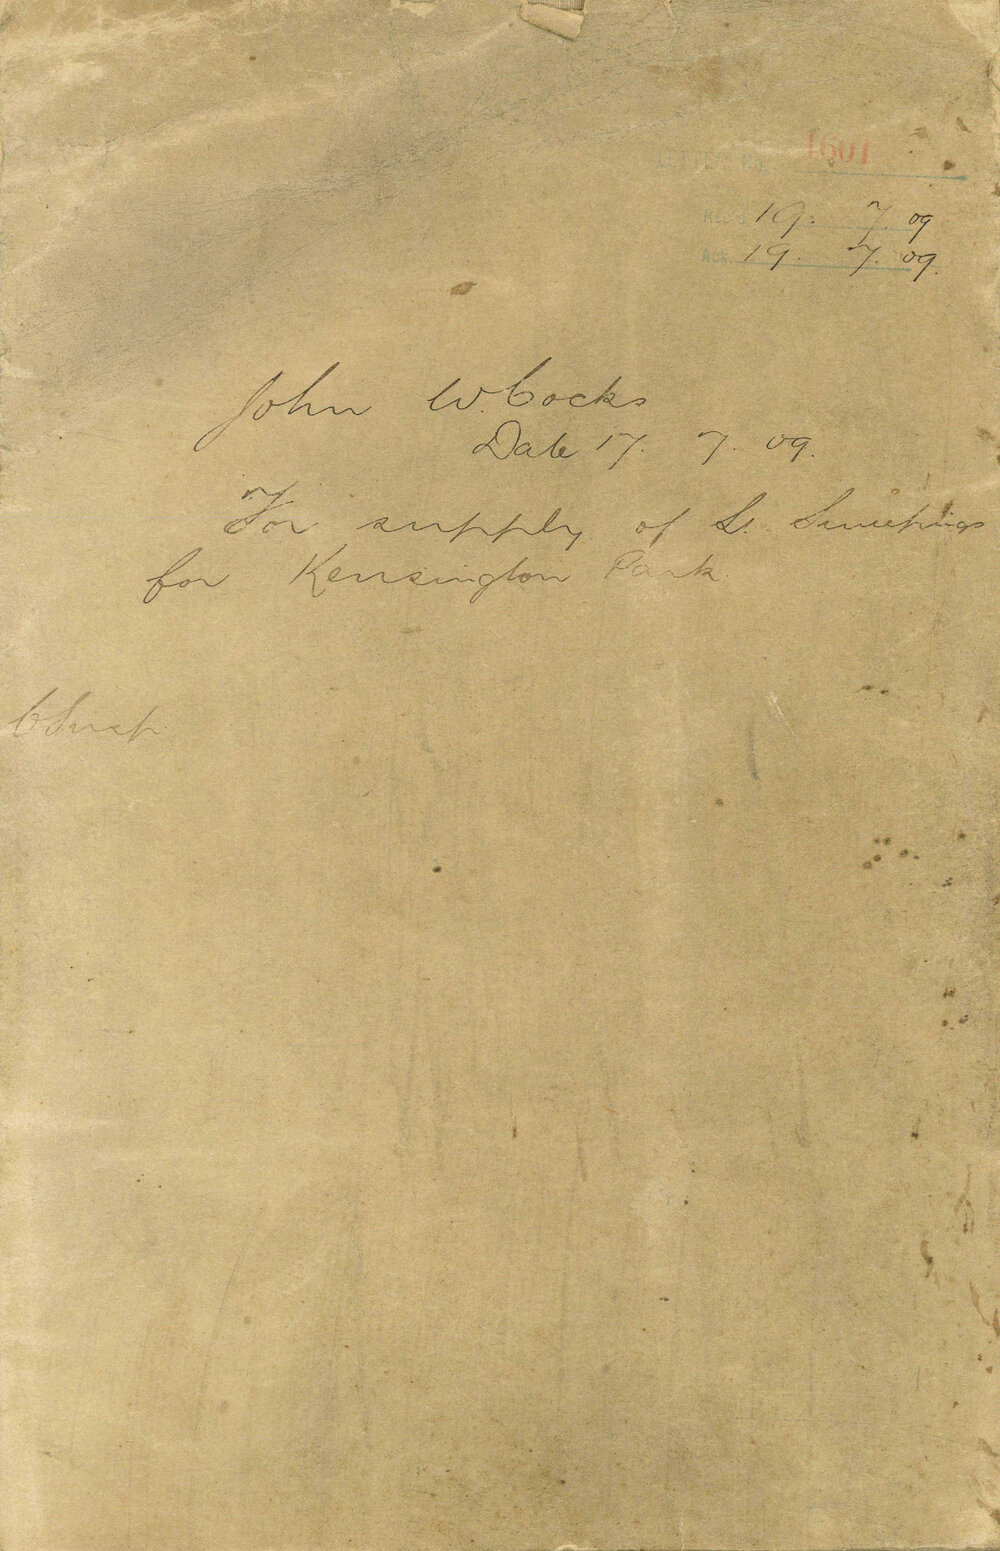 LETTER No. 1601
Rec'd 19. 7. 09
Ack. 19. 7. 09.
John W. Cocks
Date 17. 7. 09.
For supply of St. Sweepings
for Kensington Park